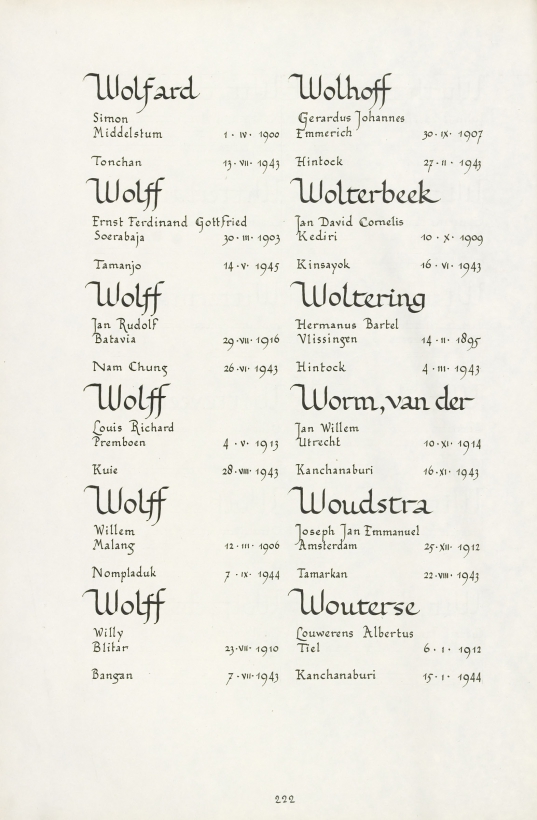 Wolfard
Simon
Middelstum 1 · IV · 1900
Tonchan 13 · VII · 1943
Wolff
Ernst Ferdinand Gottfried
Soerabaja 30 · III · 1903
Tamanjo 14 · V · 1945
Wolff
Jan Rudolf
Batavia 29 · VII · 1916
Nam Chung 26 · VI · 1943
Wolff
Louis Richard
Premboen 4 · V · 1913
Kuie 28 · VIII · 1943
Wolff
Willem
Malang 12 · III · 1906
Nompladuk 7 · IX · 1944
Wolff
Willy
Blitar 23 · VII · 1910
Bangan 7 · VII · 1943
Wolhoff
Gerardus Johannes
Emmerich 30 · IX · 1907
Hintock 27 · II · 1943
Wolterbeek
Jan David Cornelis
Kediri 10 · X · 1909
Kinsayok 16 · VI · 1943
Woltering
Hermanus Bartel
Vlissingen 14 · II · 1895
Hintock 4 · III · 1943
Worm, van der
Jan Willem
Utrecht 10 · XI · 1914
Kanchanaburi 16 · XI · 1943
Woudstra
Joseph Jan Emmanuel
Amsterdam 25 · XII · 1912
Tamarkan 22 · VIII · 1943
Wouterse
Louwerens Albertus
Tiel 6 · I · 1912
Kanchanaburi 15 · I · 1944
222